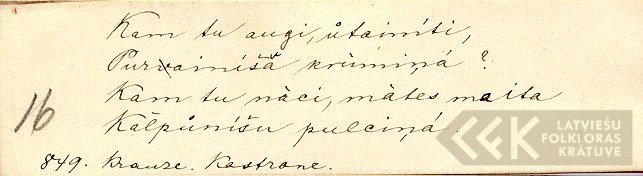 Kam tu augi, ůtainíti,
Purvainíšâ krůmiņá?
Kam tu nāci, mātes maita
Kālpůníšu pulciņá.
16
849. Krauze. Kastrane.
LATVIEŠU
FOLKLORAS
KRĀTUVE
LFK